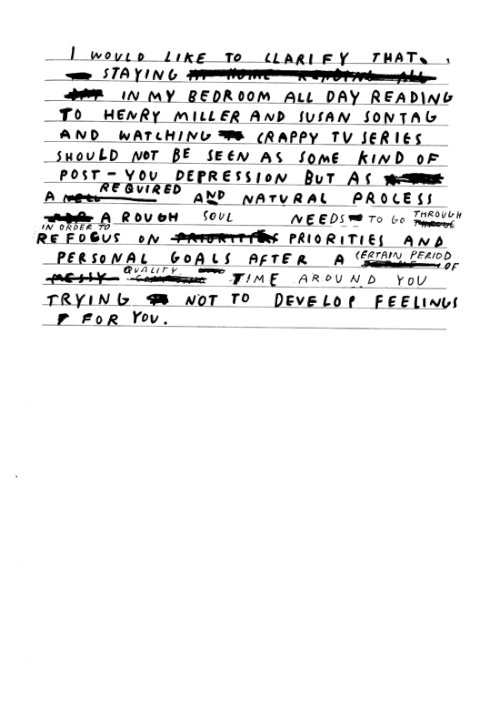 I WOULD LIKE TO CLARIFY THAT.
STAYING AT HOME READING ALL
DAY IN MY BEDROOM ALL DAY READING
TO HENRY MILLER AND SUSAN SONTAG
AND WATCHING CRAPPY TV SERIES
SHOULD NOT BE SEEN AS SOME KIND OF
POST-YOU DEPRESSION BUT AS
A REQUIRED AND NATURAL PROCESS
A ROUGH SOUL NEEDS TO GO THROUGH
IN ORDER TO
REFOCUS ON PRIORITIES PRIORITIES AND
PERSONAL GOALS AFTER A CERTAIN PERIOD
OF
MESSY QUALITY TIME AROUND YOU
TRYING NOT TO DEVELOP FEELINGS
FOR YOU.